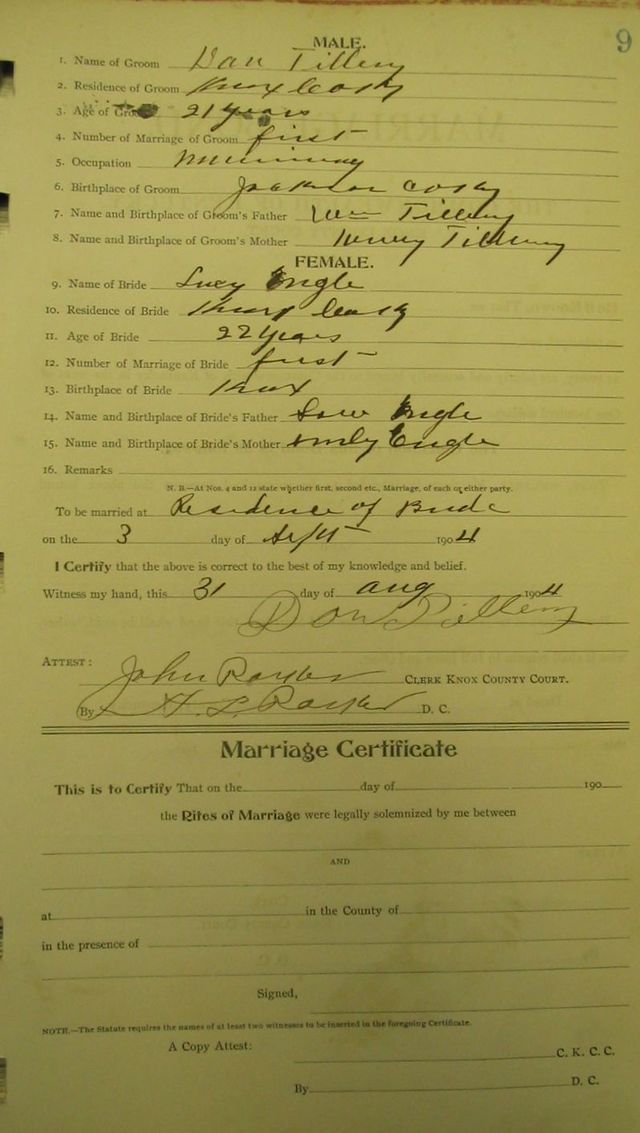 9
MALE.
1. Name of Groom Dan Tillery
2. Residence of Groom Knox Co Ky
3. Age of Groom 21 years
4. Number of Marriage of Groom first
5. Occupation
6. Birthplace of Groom Jackson Co Ky
7. Name and Birthplace of Groom's Father Wm Tillery
8. Name and Birthplace of Groom's Mother Tillery
FEMALE.
9. Name of Bride Lucy Engle
10. Residence of Bride Knox Co Ky
11. Age of Bride 22 years
12. Number of Marriage of Bride first
13. Birthplace of Bride Knox
14. Name and Birthplace of Bride's Father Engle
15. Name and Birthplace of Bride's Mother Emily Engle
16. Remarks
N. B.—At Nos. 4 and 12 state whether first, second etc., Marriage, of each or either party.
To be married at Residence of Bride
on the 3 day of Sept 1904
I Certify that the above is correct to the best of my knowledge and belief.
Witness my hand, this 31 day of aug 1904
Dan Tillery
ATTEST: John Parker CLERK KNOX COUNTY COURT.
By H. L. Parker D. C.
Marriage Certificate
This is to Certify That on the day of 190
the Rites of Marriage were legally solemnized by me between
AND
at in the County of
in the presence of
Signed,
NOTE.—The Statute requires the names of at least two witnesses to be inserted in the foregoing Certificate.
A Copy Attest: C. K. C. C.
By D. C.